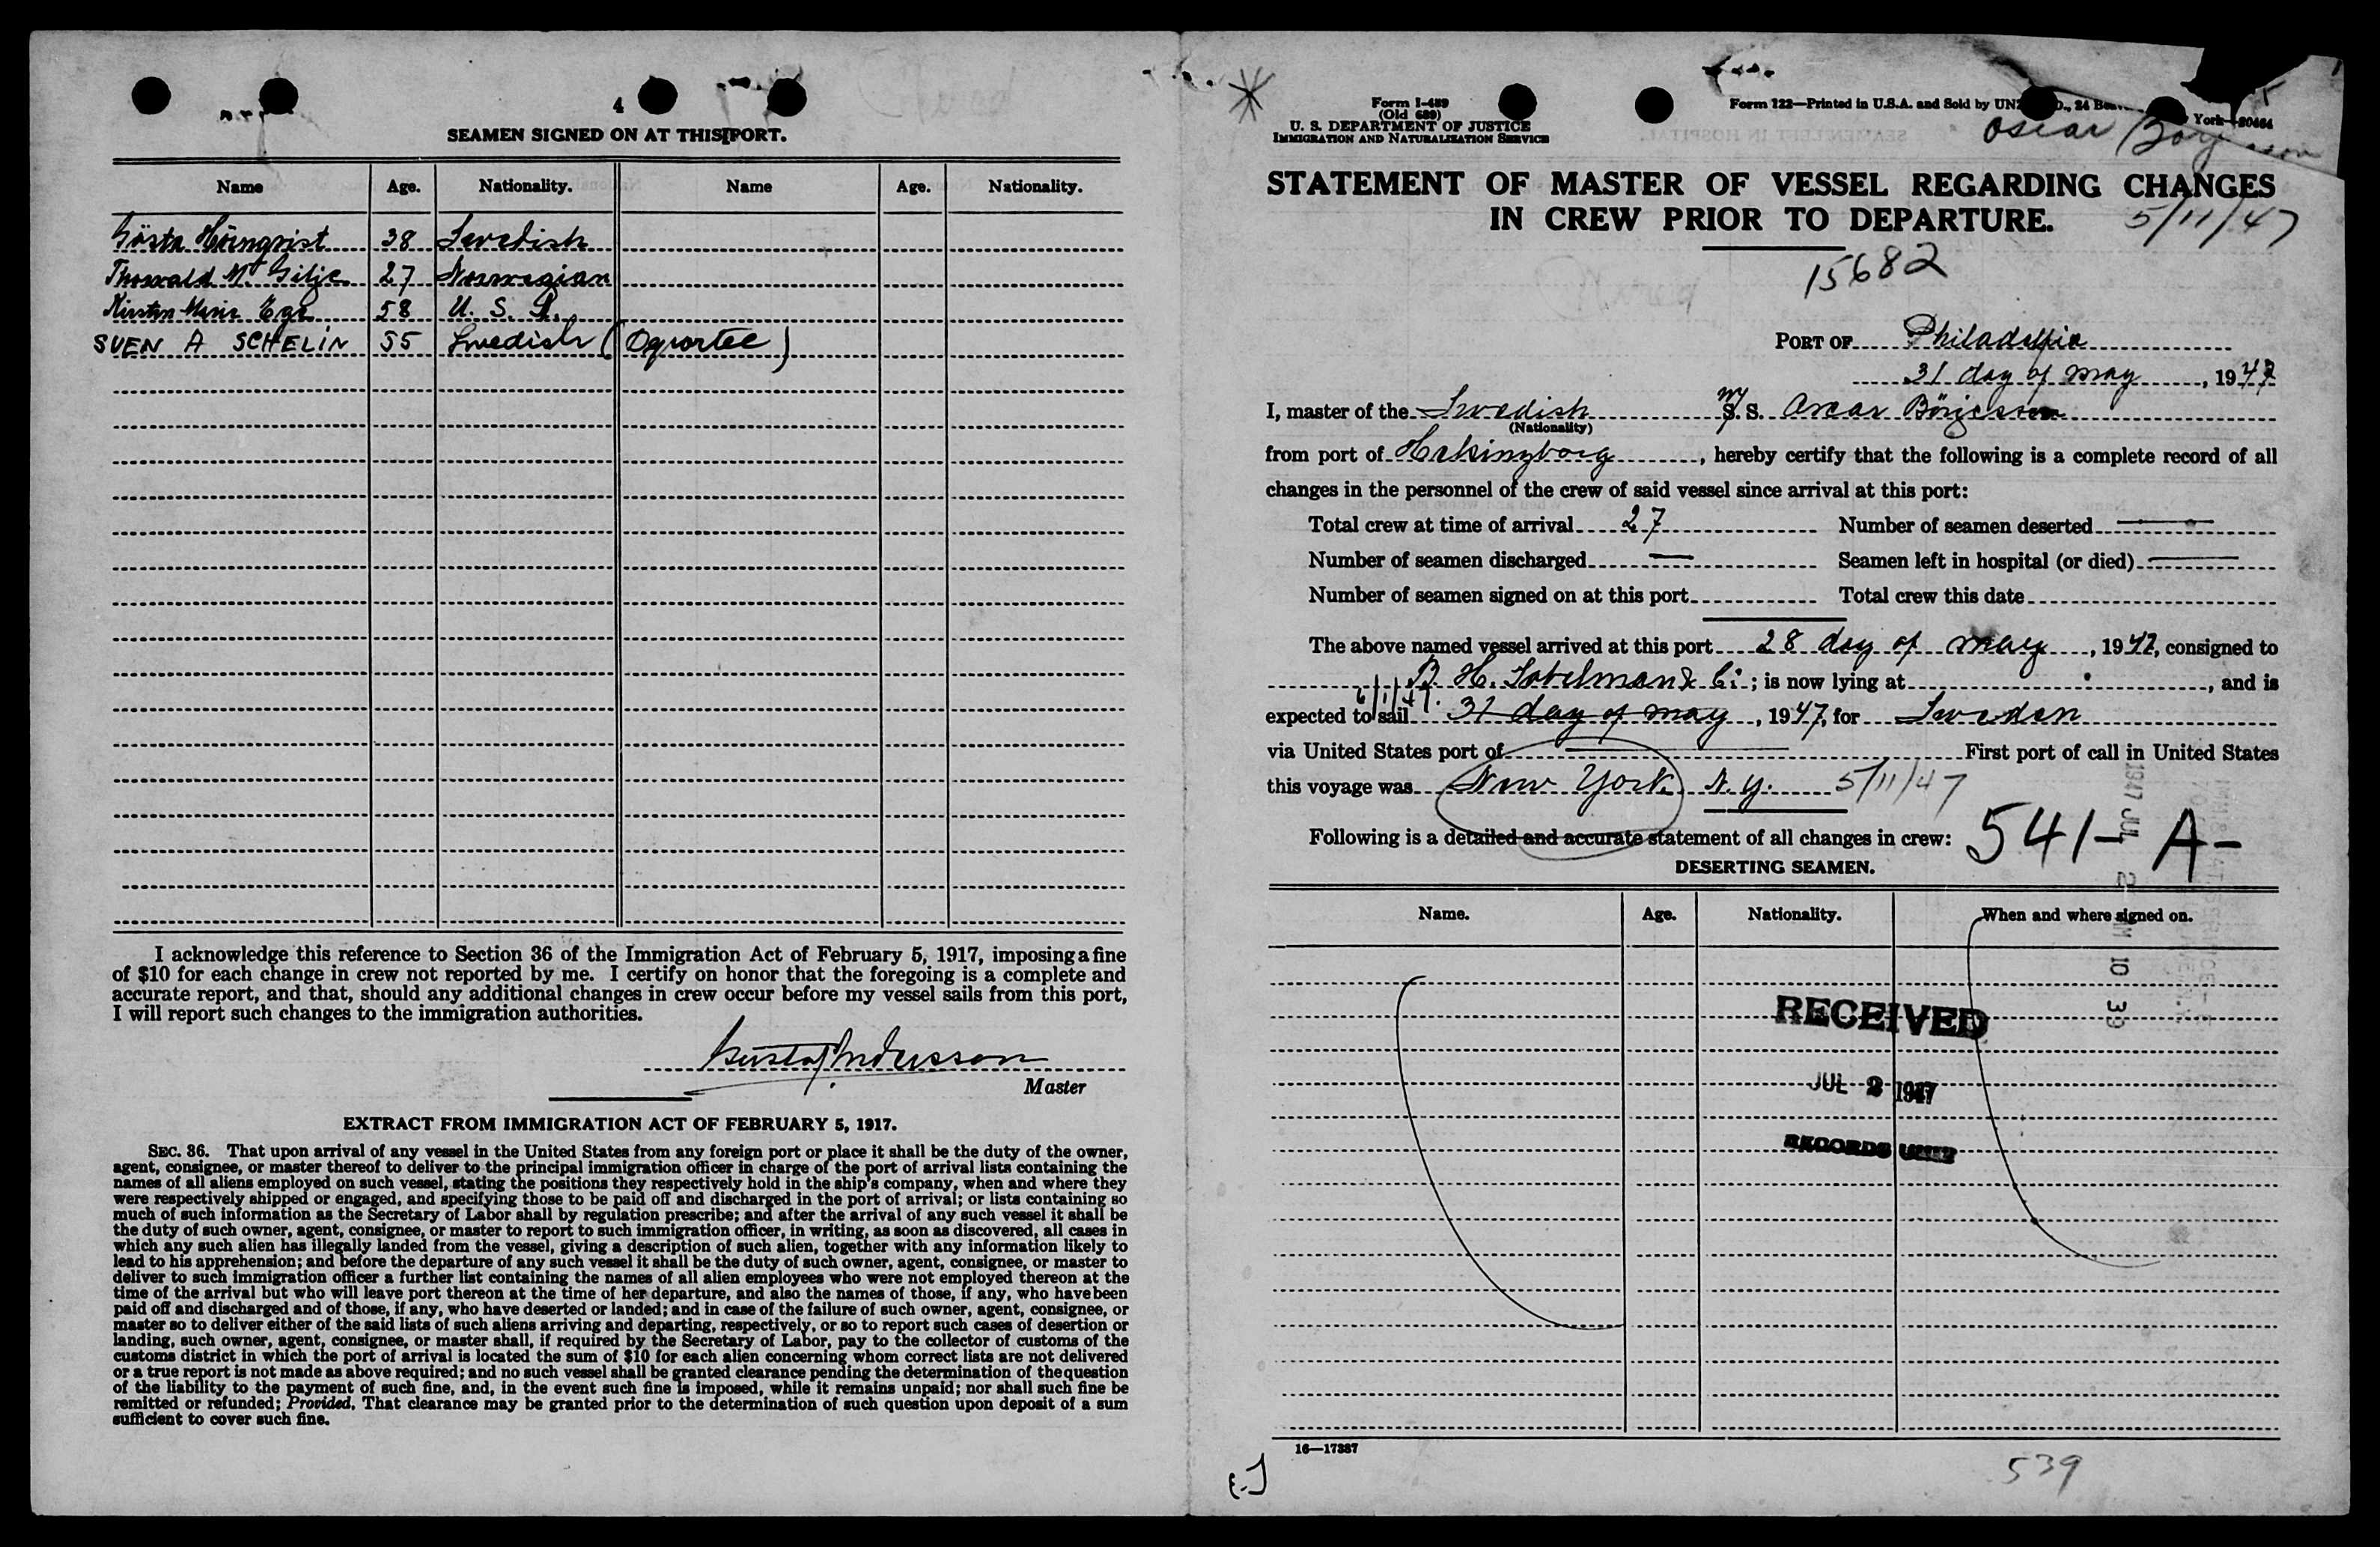 4
SEAMEN SIGNED ON AT THIS PORT.
Name Age. Nationality. Name Age. Nationality.
Gösta Hörnqvist 38 Swedish
Thorvald M. Gilje 27 Norwegian
Kirsten Marie Ege 58 U. S. A.
SVEN A SCHELIN 55 Swedish (
I acknowledge this reference to Section 36 of the Immigration Act of February 5, 1917, imposing a fine
of $10 for each change in crew not reported by me. I certify on honor that the foregoing is a complete and
accurate report, and that, should any additional changes in crew occur before my vessel sails from this port,
I will report such changes to the immigration authorities.
Gustaf Andersson
Master
EXTRACT FROM IMMIGRATION ACT OF FEBRUARY 5, 1917.
SEC. 36. That upon arrival of any vessel in the United States from any foreign port or place it shall be the duty of the owner,
agent, consignee, or master thereof to deliver to the principal immigration officer in charge of the port of arrival lists containing the
names of all aliens employed on such vessel, stating the positions they respectively hold in the ship's company, when and where they
were respectively shipped or engaged, and specifying those to be paid off and discharged in the port of arrival; or lists containing so
much of such information as the Secretary of Labor shall by regulation prescribe; and after the arrival of any such vessel it shall be
the duty of such owner, agent, consignee, or master to report to such immigration officer, in writing, as soon as discovered, all cases in
which any such alien has illegally landed from the vessel, giving a description of such alien, together with any information likely to
lead to his apprehension; and before the departure of any such vessel it shall be the duty of such owner, agent, consignee, or master to
deliver to such immigration officer a further list containing the names of all alien employees who were not employed thereon at the
time of the arrival but who will leave port thereon at the time of her departure, and also the names of those, if any, who have been
paid off and discharged and of those, if any, who have deserted or landed; and in case of the failure of such owner, agent, consignee, or
master so to deliver either of the said lists of such aliens arriving and departing, respectively, or so to report such cases of desertion or
landing, such owner, agent, consignee, or master shall, if required by the Secretary of Labor, pay to the collector of customs of the
customs district in which the port of arrival is located the sum of $10 for each alien concerning whom correct lists are not delivered
or a true report is not made as above required; and no such vessel shall be granted clearance pending the determination of the question
of the liability to the payment of such fine, and, in the event such fine is imposed, while it remains unpaid; nor shall such fine be
remitted or refunded; Provided, That clearance may be granted prior to the determination of such question upon deposit of a sum
sufficient to cover such fine.
Form I-489
(Old 689)
U. S. DEPARTMENT OF JUSTICE
IMMIGRATION AND NATURALIZATION SERVICE
Form 122—Printed in U.S.A. and Sold by 24 York
Oscar
STATEMENT OF MASTER OF VESSEL REGARDING CHANGES
IN CREW PRIOR TO DEPARTURE.
5/11/47
15682
PORT OF Philadelfia
31 day of may, 1947
I, master of the Swedish M/S. S. Oscar Börjesson
(Nationality)
from port of Helsingborg, hereby certify that the following is a complete record of all
changes in the personnel of the crew of said vessel since arrival at this port:
Total crew at time of arrival 27 Number of seamen deserted —
Number of seamen discharged — Seamen left in hospital (or died) —
Number of seamen signed on at this port Total crew this date
The above named vessel arrived at this port 28 day of may, 1947, consigned to
B. H. Sobelman & Co; is now lying at , and is
6/1/47.
expected to sail 31 day of may, 1947, for Sweden
via United States port of — First port of call in United States
this voyage was New York N. Y. 5/11/47
Following is a detailed and accurate statement of all changes in crew:
541- A-
DESERTING SEAMEN.
Name. Age. Nationality. When and where signed on.
1947 JUL 2 10 39
RECEIVED
JUL 2 1947
RECORDS UNIT
16—17387
539